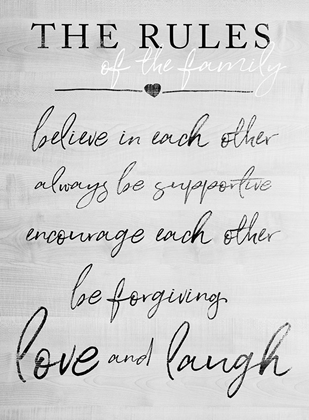 THE RULES
of the family
believe in each other
always be supportive
encourage each other
be forgiving
love and laugh